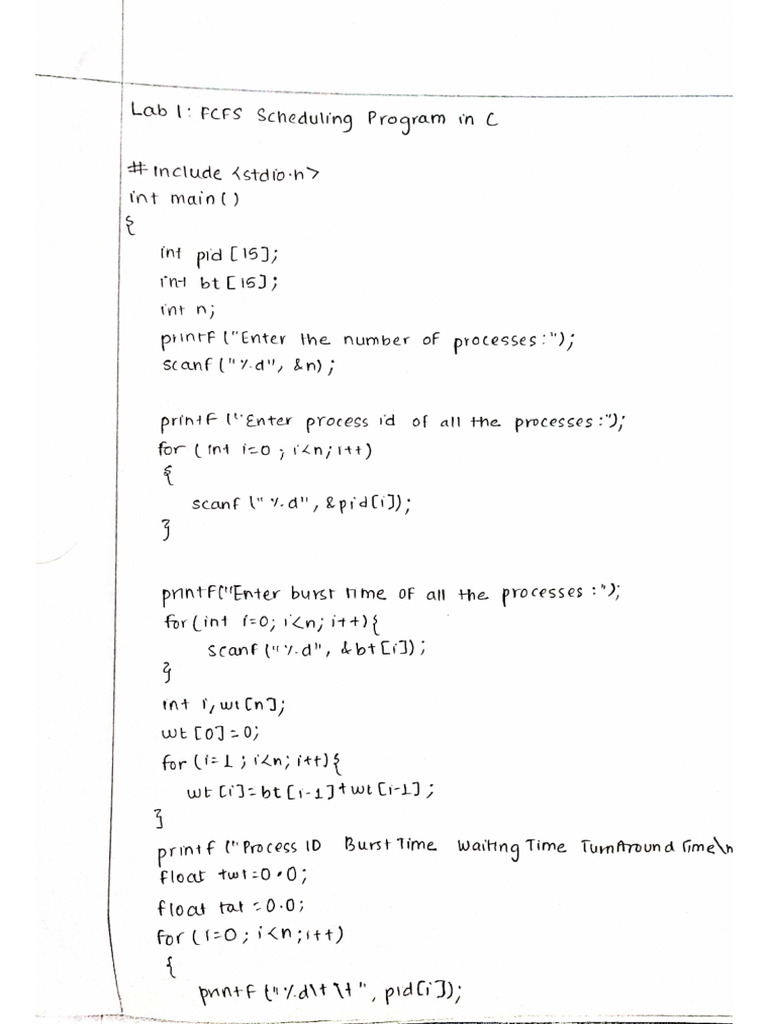 Lab 1: FCFS Scheduling Program in C
#include <stdio.h>
int main()
{
int pid [15];
int bt [15];
int n;
printf ("Enter the number of processes:");
scanf ("%d", &n);
printf ("Enter process id of all the processes:");
for (int i=0; i<n; i++)
{
scanf ("%d", &pid[i]);
}
printf("Enter burst time of all the processes:");
for (int i=0; i<n; i++){
scanf ("%d", &bt[i]);
}
int i, wt[n];
wt [0] = 0;
for (i=1; i<n; i++){
wt [i]=bt [i-1]+wt [i-1];
}
printf ("Process ID Burst Time Waiting Time TurnAround Time\n
float twt=0.0;
float tat = 0.0;
for (i=0; i<n; i++)
{
printf ("%d\t\t", pid[i]);